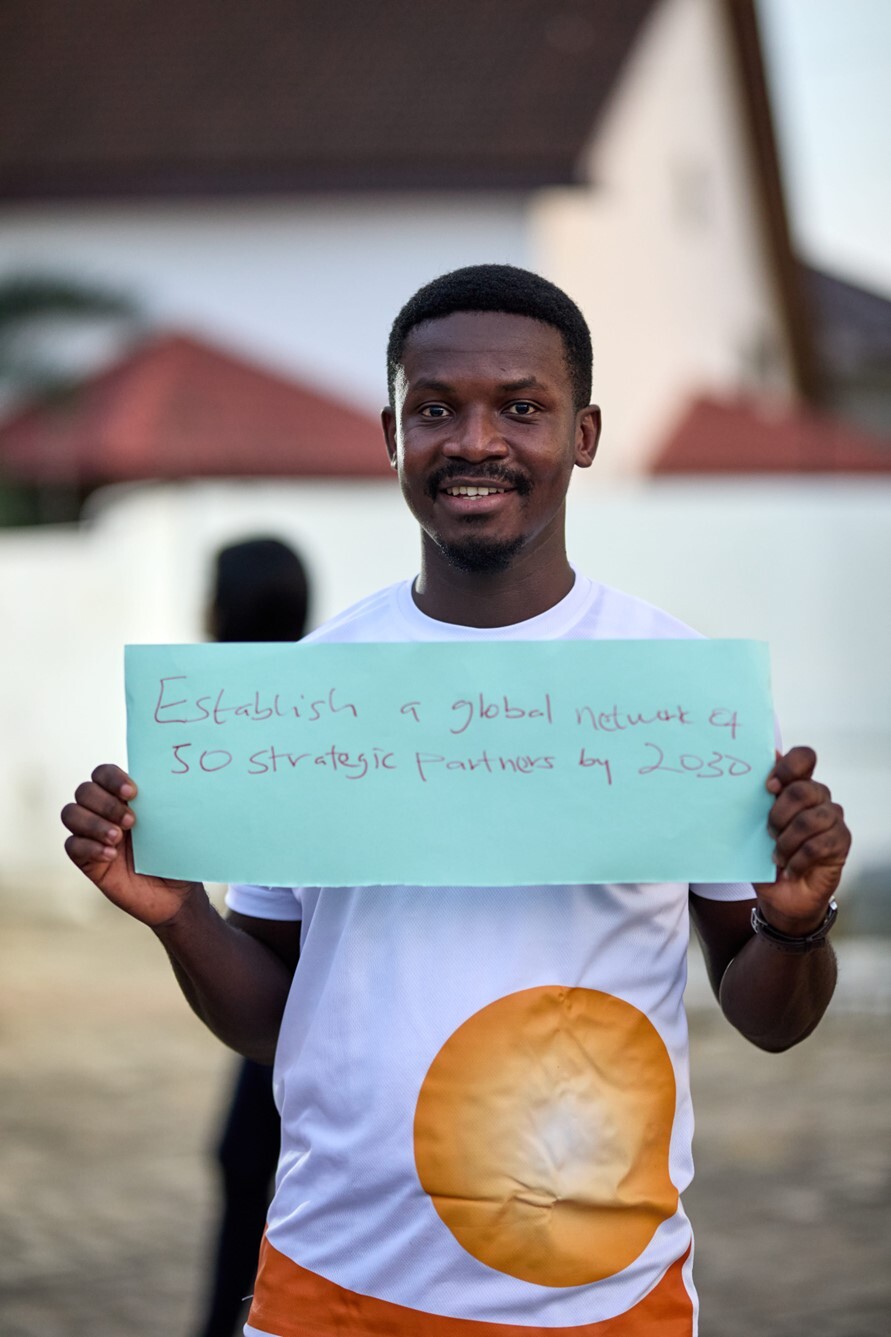 Establish a global network of
50 strategic partners by 2030